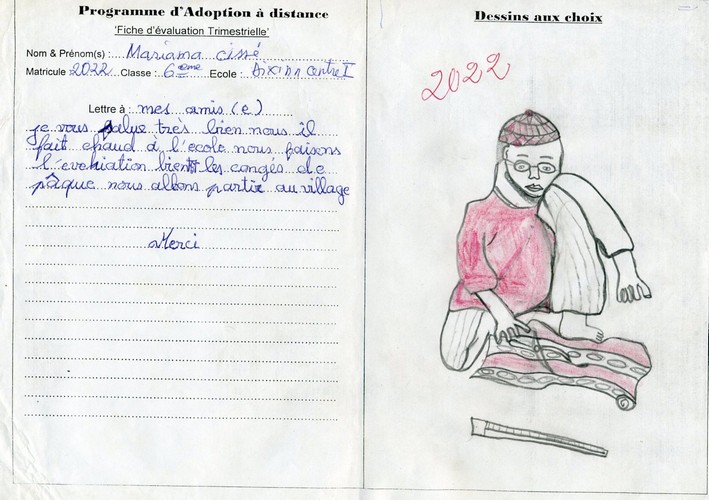 Programme d'Adoption à distance
'Fiche d'évaluation Trimestrielle'
Nom & Prénom(s) : Mariama cissé
Matricule 2022 Classe : 6ème Ecole : Dixinn centre I
Lettre à : mes amis (e)
je vous salue tres bien nous il
fait chaud à l'école nous faisons
l'évohiation bientôt les congés de
pâque nous allons partir au village
Merci
Dessins aux choix
2022